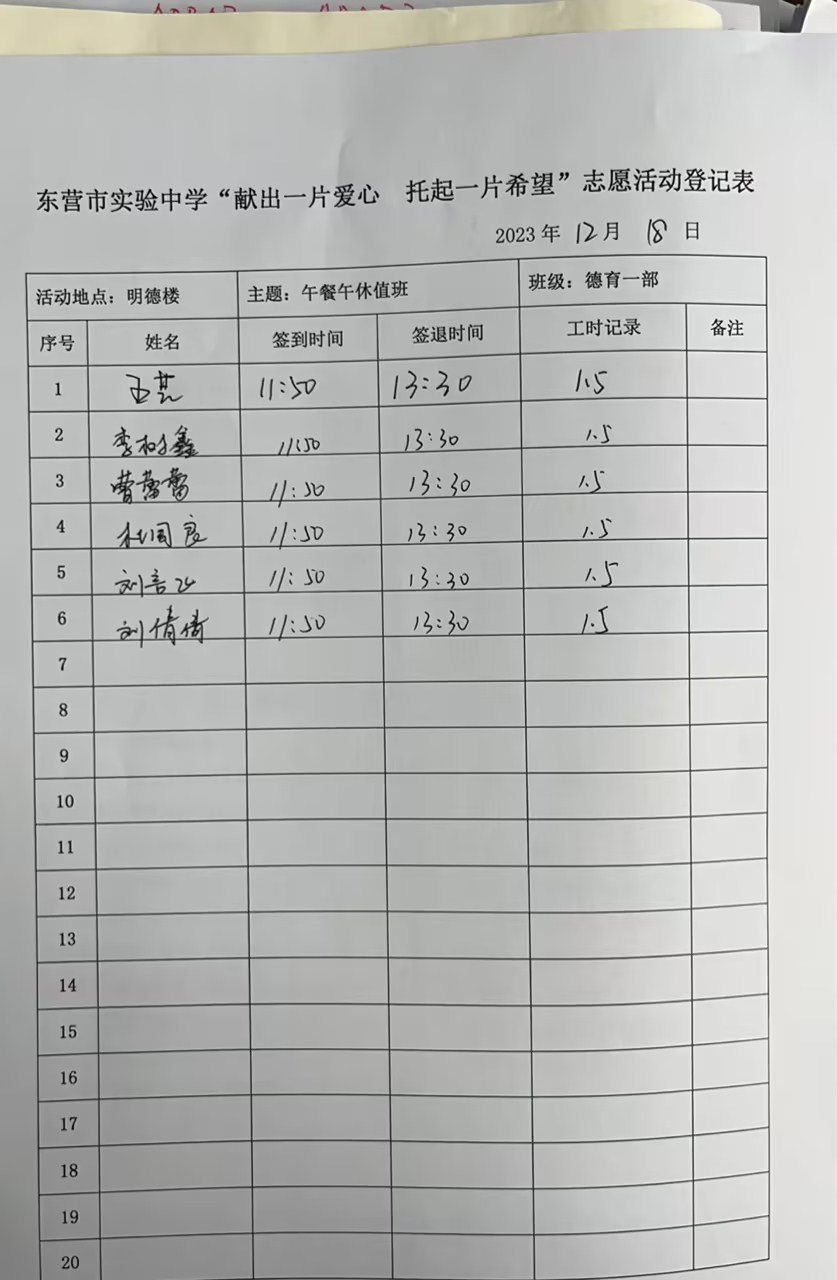 东营市实验中学“献出一片爱心 托起一片希望”志愿活动登记表
2023 年 12 月 18 日
活动地点：明德楼 主题：午餐午休值班 班级：德育一部
序号 姓名 签到时间 签退时间 工时记录 备注
1 11:50 13:30 1.5
2 李树鑫 11:50 13:30 1.5
3 曹蕾蕾 11:50 13:30 1.5
4 11:50 13:30 1.5
5 刘 11:50 13:30 1.5
6 刘倩倩 11:50 13:30 1.5
7
8
9
10
11
12
13
14
15
16
17
18
19
20